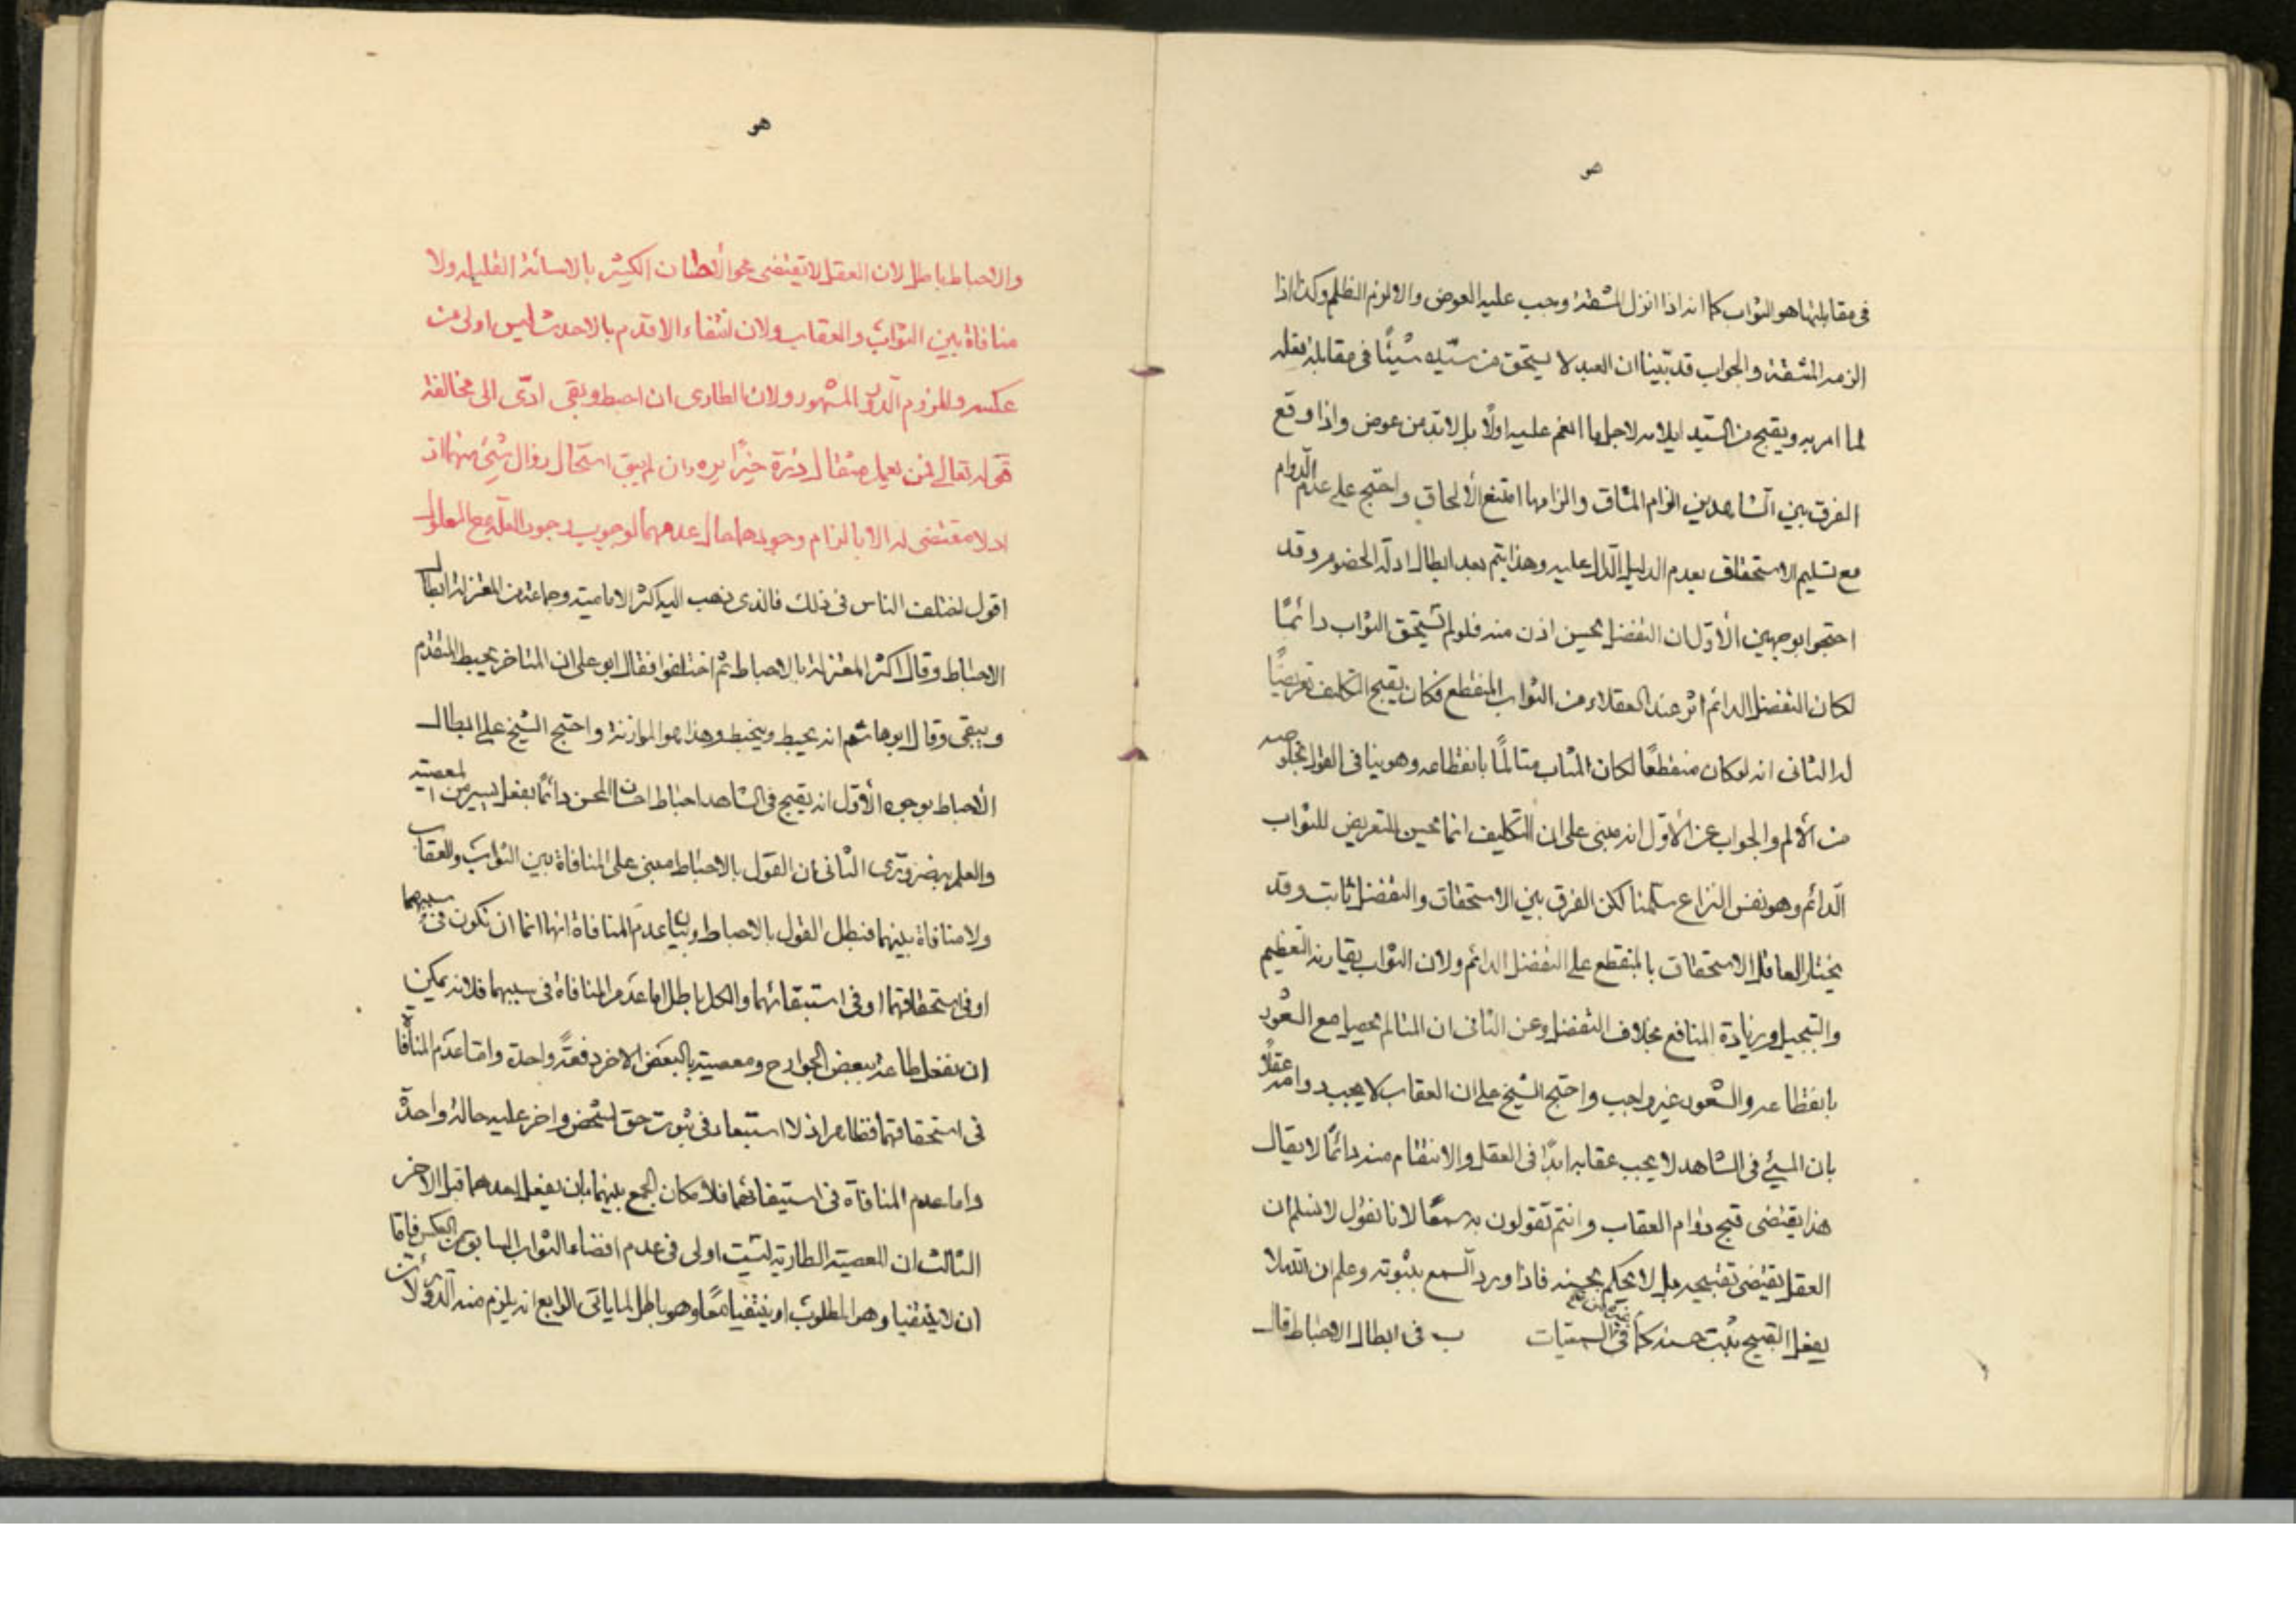 هو
فى مقابلتها هو الثواب كما انه اذا انزل المشقة وجب عليه العوض والا لزم الظلم وكذا اذا
الزمه المشقة والجواب قد بيّنا ان العبد لا يستحق من سيّده شيئًا فى مقابلة فعله
لما امر به ويقبح من السيّد ايلامه لاجل ما انعم عليه اولًا بل لابد من عوض واذا وقع
الفرق بين الشاهدين الزام المشاق والزامها امتنع الألحاق واحتج على عدم الدوام
مع تسليم الاستحقاق بعدم الدليل الدّال عليه وهذا يتم بعد ابطال ادلة الخصوم وقد
احتجوا بوجهين الأوّل ان التفضل يحسن اذن منه فلو لم تستحق الثواب دائمًا
لكان التفضل الدائم اثر عند العقلاء من الثواب المنقطع فكان يقبح التكليف تعريضًا
له الثانى انه لو كان منقطعًا لكان المثاب متالمًا بانقطاعه وهو ينافى القول بخلوصه
من الألم والجواب عن الأوّل انه مبنى على ان التكليف انما يحسن للتعريض للثواب
الدّائم وهو نفس النزاع سلّمنا لكن الفرق بين الاستحقاق والتفضل ثابت وقد
يختار العاقل الاستحقاق بالمنقطع على التفضل الدائم ولان الثواب يقارنه التعظيم
والتبجيل وزيادة المنافع بخلاف التفضل وعن الثانى ان التالم يحصل مع الشعور
بانقطاعه والشعور غير واجب واحتج الشيخ على ان العقاب لا يجب دوامه عقلًا
بان المسيئ فى الشاهد لا يجب عقابه ابدًا فى العقل والانتقام منه دائمًا لا يقال
هذا يقتضى قبح دوام العقاب وانتم تقولون به سمعًا لانا نقول لا نسلم ان
العقل يقتضى تقبيحه بل لا يحكم بحسنه فاذا ورد السمع بثبوته وعلم ان الله لا
يفعل القبيح ثبت حسنه كما فى السمعيات ب فى ابطال الاحباط قال
هو
والاحباط باطل لان العقل لا يقتضى محو الأحسان الكثير بالاسائة القليله ولا
منافاة بين الثواب والعقاب ولان انتفاء الاقدم بالاحدث ليس اولى من
عكسه وللزوم الدور المشهور ولان الطارى ان احبط وبقى ادّى الى مخالفة
قوله تعالى فمن يعمل مثقال ذرة خيرًا يره وان لم يبق استحال زوال شئ منهما اذ
اذ لا مقتضى له الا بالزام وجودهما حال عدمهما لوجوب وجود العلّة مع المعلول
اقول اختلف الناس فى ذلك فالذى ذهب اليه اكثر الاماميته وجماعة من المعتزلة ابطال
الاحباط وقال اكثر المعتزلة بالاحباط ثم اختلفوا فقال ابو على ان المتاخر يحبط المتقدم
ويبقى وقال ابو هاشم انه يحبط وينحبط وهذا هو الموازنة واحتج الشيخ على ابطال
الأحباط بوجوه الأوّل انه يقبح فى الشاهد احباط احسان المحسن دائمًا بفعل يسير من المعصيته
والعلم به ضرورّى الثانى ان القول بالاحباط مبنى على المنافاة بين الثواب والعقاب
ولا منافاة بينهما فبطل القول بالاحباط وبيان عدم المنافاة انها اما ان تكون فى سببهما
او فى استحقاقهما او فى استبقائهما والكل باطل اما عدم المنافاة فى سببهما فلانه يمكن
ان نفعل طاعة ببعض الجوارح ومعصيته بالبعض الاخر دفعةً واحدة وامّا عدم المنافاة
فى استحقاقهما فظاهر اذ لا استبعاد فى ثبوت حق لشخص واخر عليه حالة واحدة
واما عدم المنافاة فى استيفائهما فلامكان الجمع بينهما بان يفعل احدهما قبل الاخر
الثالث ان المعصيته الطاريه ليست اولى فى عدم افضاء الثواب السابق من العكس فامّا
ان لا ينتفيا وهو المطلوب او ينتفيا معًا وهو باطل لما ياتى الرابع انه يلزم منه الدور لأن